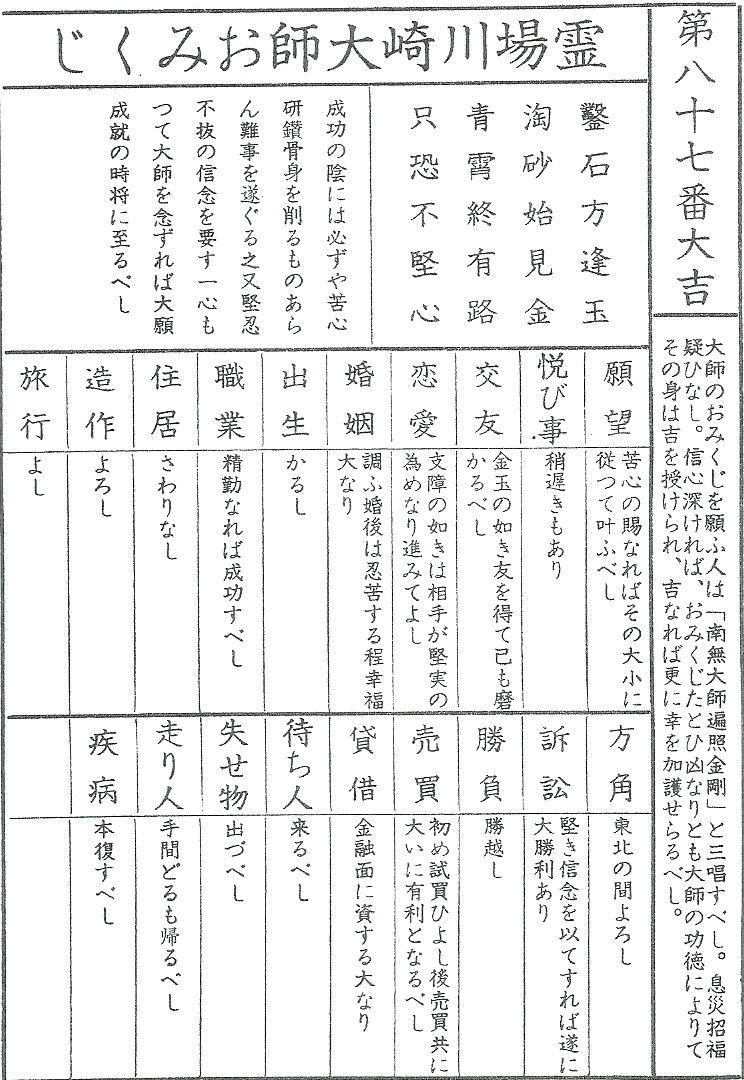 第八十七番大吉
大師のおみくじを願ふ人は「南無大師遍照金剛」と三唱すべし。息災招福
疑ひなし。信心深ければ、おみくじたとひ凶なりとも大師の功徳によりて
その身は吉を授けられ、吉なれば更に幸を加護せらるべし。
霊場川崎大師おみくじ
鑿石方逢玉
淘砂始見金
青霄終有路
只恐不堅心
成功の陰には必ずや苦心
研鑽骨身を削るものあら
ん難事を遂ぐる之又堅忍
不抜の信念を要す一心も
つて大師を念ずれば大願
成就の時将に至るべし
願望
苦心の賜なればその大小に
従つて叶ふべし
悦び事
稍遅きもあり
交友
金玉の如き友を得て已も磨
かるべし
恋愛
支障の如きは相手が堅実の
為めなり進みてよし
婚姻
調ふ婚後は忍苦する程幸福
大なり
出生
かるし
職業
精勤なれば成功すべし
住居
さわりなし
造作
よろし
旅行
よし
方角
東北の間よろし
訴訟
堅き信念を以てすれば遂に
大勝利あり
勝負
勝越し
売買
初め試買ひよし後売買共に
大いに有利となるべし
貸借
金融面に資する大なり
待ち人
来るべし
失せ物
出づべし
走り人
手間どるも帰るべし
疾病
本復すべし